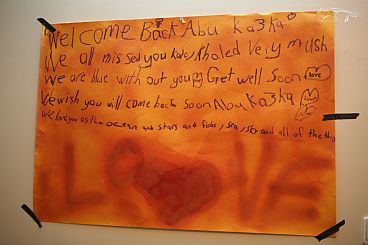 Welcome Back Abu Ka3ka
We all missed you kalo, Khaled Very mush
We are blue with out you Get well soon love
We wish you will come back soon Abu Ka3ka
We love you as the ocean and stars and fish, sea, sky and all of the
LOVE